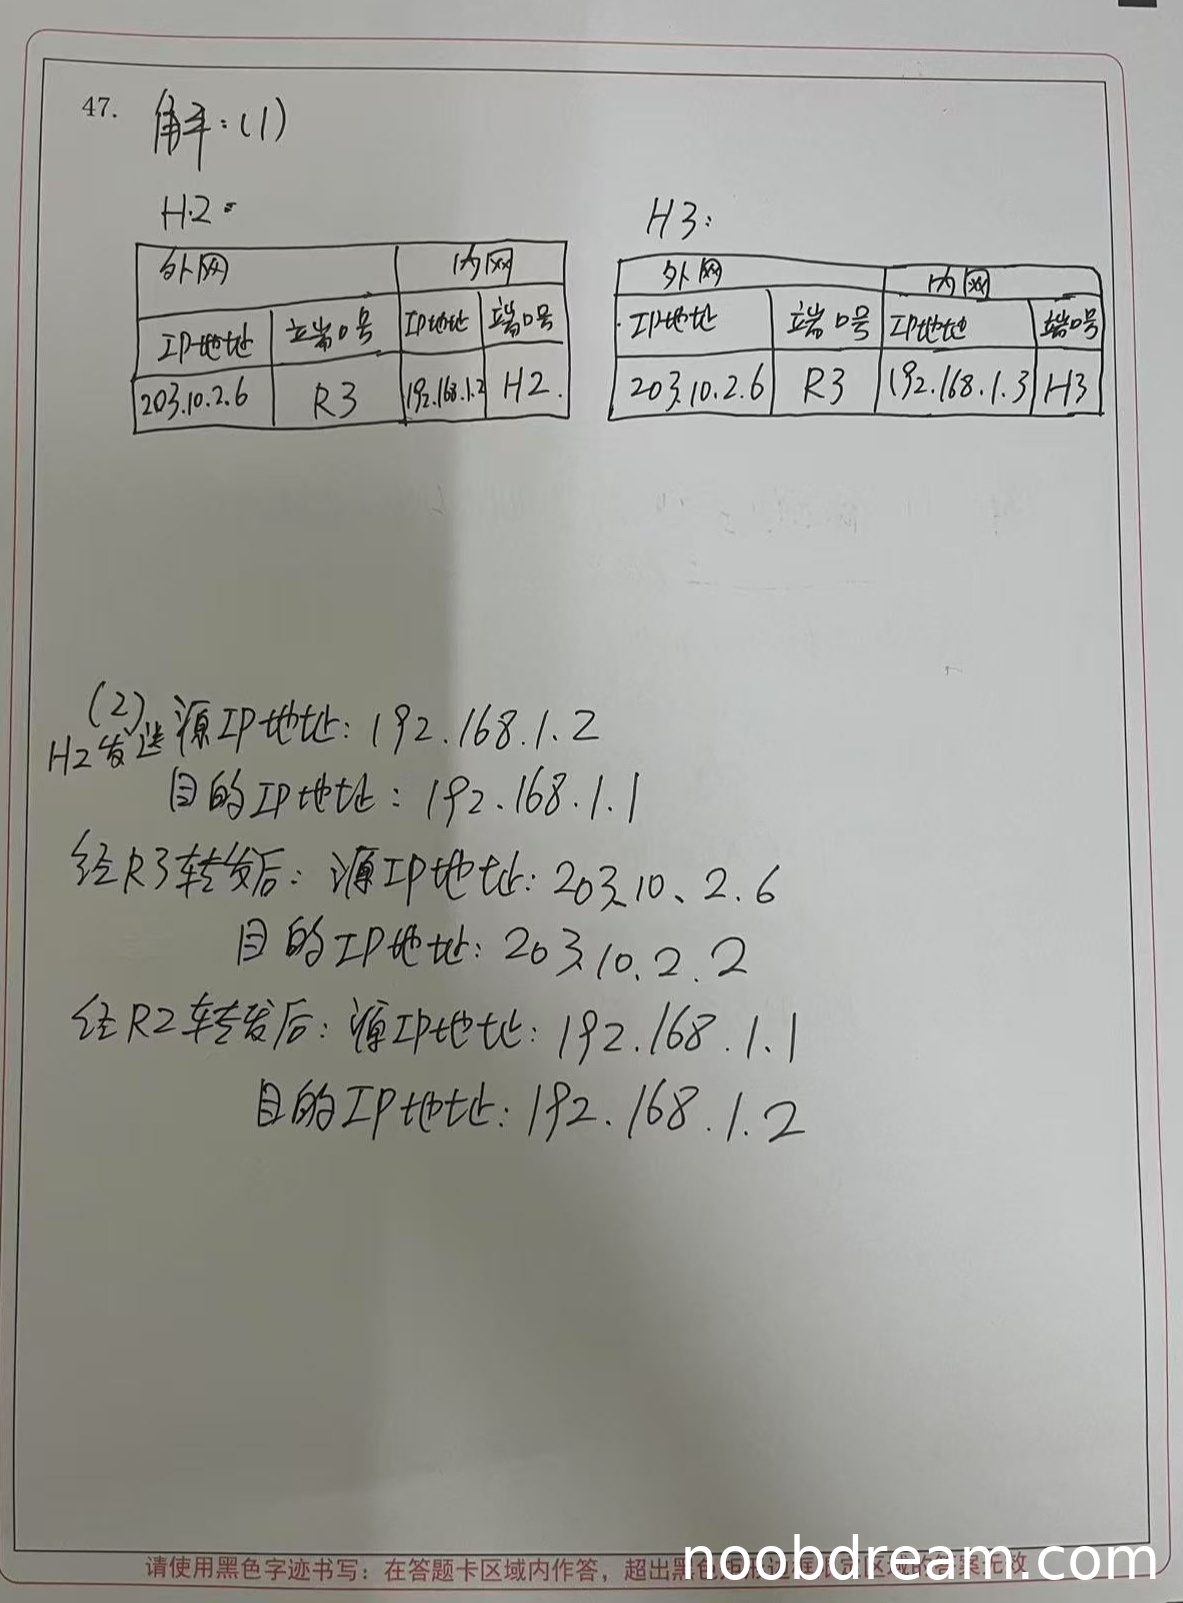 47. 解:(1)
H2:
外网 内网
IP地址 端口号 IP地址 端口号
203.10.2.6 R3 192.168.1.2 H2.
H3:
外网 内网
IP地址 端口号 IP地址 端口号
203.10.2.6 R3 192.168.1.3 H3
(2)
H2发送 源IP地址: 192.168.1.2
目的IP地址: 192.168.1.1
经R3转发后: 源IP地址: 203.10.2.6
目的IP地址: 203.10.2.2
经R2转发后: 源IP地址: 192.168.1.1
目的IP地址: 192.168.1.2
请使用黑色字迹书写: 在答题卡区域内作答, 超出黑色矩形边框限定区域的答案无效
noobdream.com